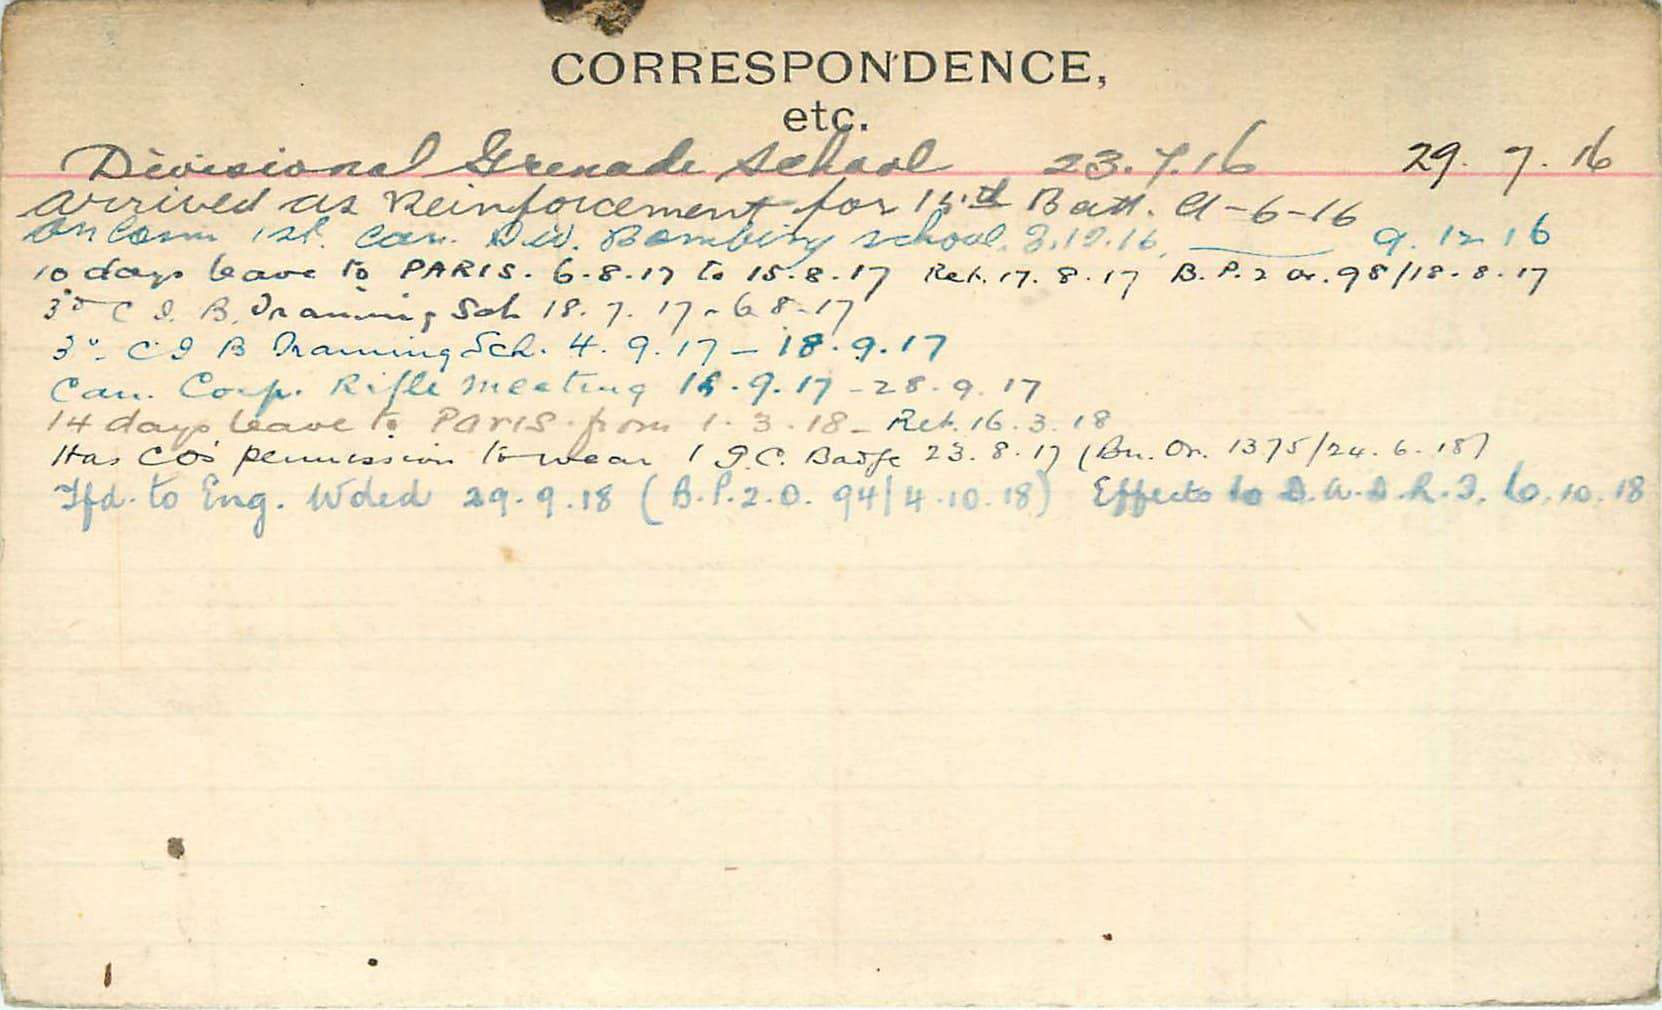 CORRESPONDENCE,
etc.
Divisional Grenade School 23.7.16 29.7.16
Arrived as Reinforcement for Batt. 9-6-16
On Com 1st. Can. Div. Bombing School. 3.12.16. 9.12.16
10 days leave to PARIS. 6.8.17 to 15.8.17 Ret. 17.8.17 B.P. 2 Or. 98/18.8.17
3rd C I B. Training Sch 18.7.17 - 6.8.17
3rd C I B Training Sch. 4.9.17 - 18.9.17
Can. Corp. Rifle Meeting 18.9.17 - 28.9.17
14 days leave to PARIS. from 1.3.18 - Ret. 16.3.18
Has CO's permission to wear 1 G.C. Badge 23.8.17 (Bn. Or. 1375/24.6.18)
Tfd. to Eng. Wded 29.9.18 (B.P.2.O. 94/4.10.18) Effects to .10.18